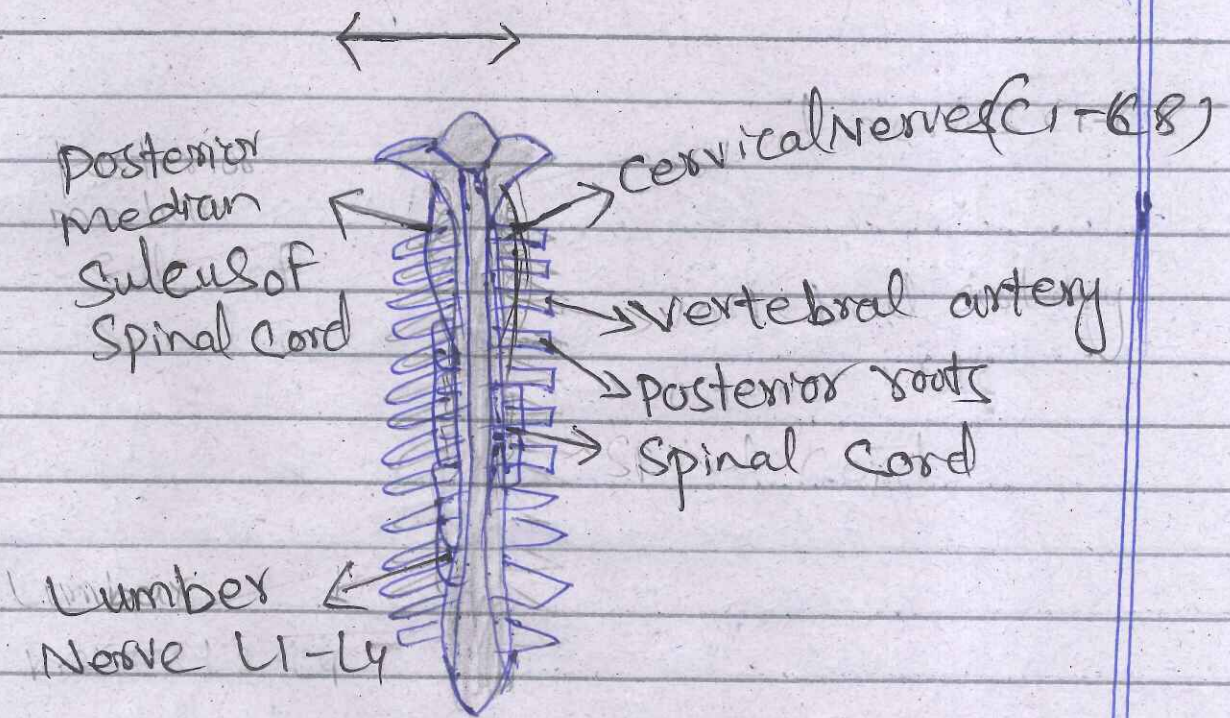 Posterior
median
Sulcus of
Spinal Cord
Cervical Nerves (C1-C8)
Vertebral artery
Posterior roots
Spinal Cord
Lumber
Nerve L1-L4